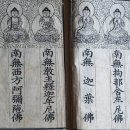 南無拘那含牟尼佛
南無迦葉佛
南無教主釋迦牟尼佛
南無西方阿彌陀佛